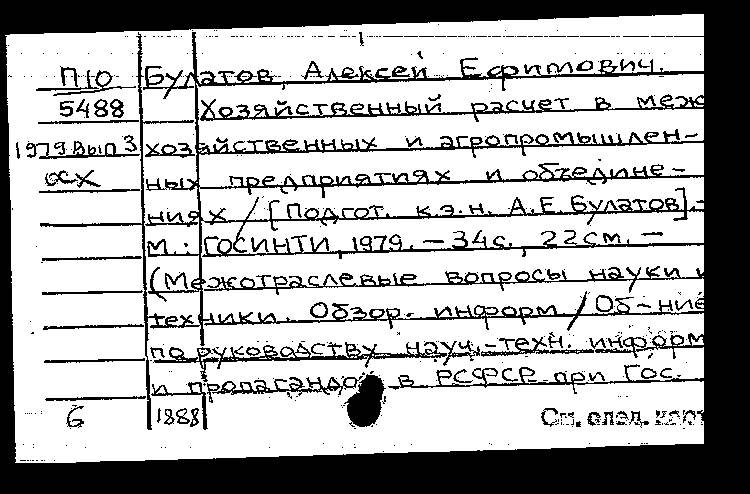 П10 Булатов, Алексей Ефимович.
5488 Хозяйственный расчет в меж
1979 Вып 3 хозяйственных и агропромышлен-
сх ных предприятиях и объедине-
ниях / [Подгот. к.э.н. А.Е.Булатов].-
М.: ГОСИНТИ, 1979. - 34с., 22см. -
(Межотраслевые вопросы науки и
техники. Обзор. информ / Об-ние
по руководству науч.-техн. информ
и пропагандой в РСФСР при Гос.
6 1888 См. след. карт